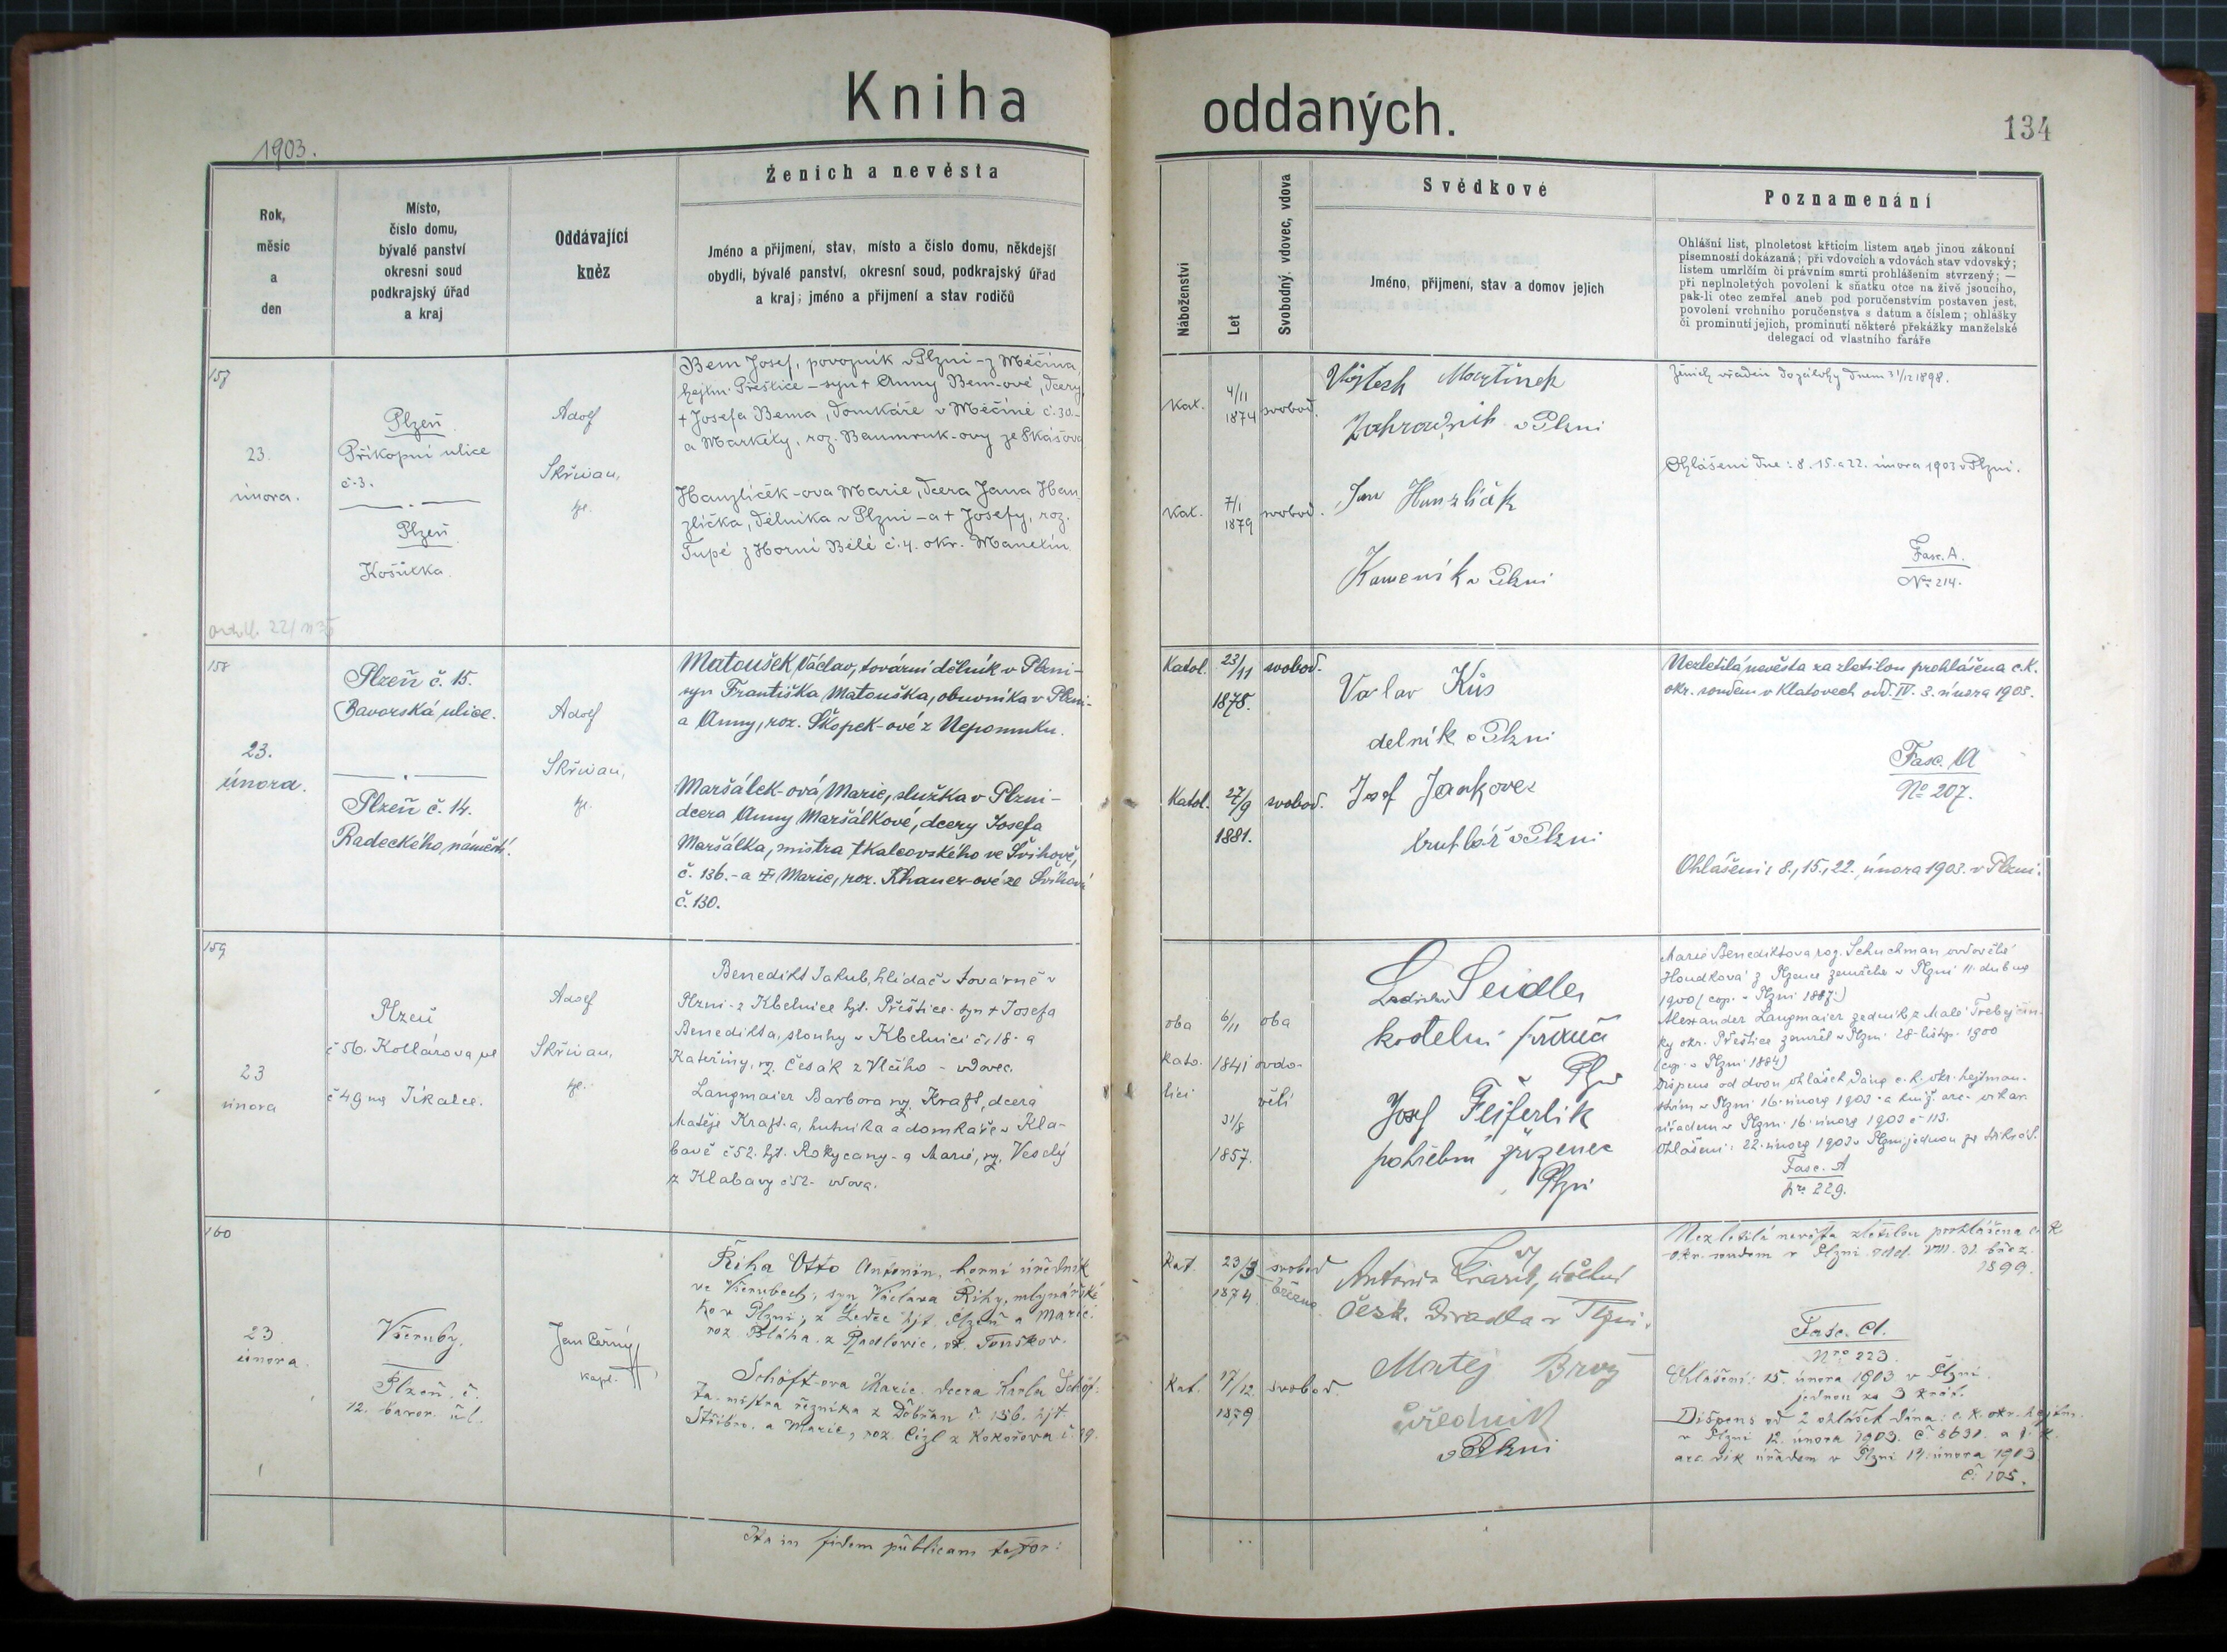 Kniha
oddaných.
134
1903.
Rok,
měsíc
a
den
Místo,
číslo domu,
bývalé panství
okresní soud
podkrajský úřad
a kraj
Oddávající
kněz
Ženich a nevěsta
Jméno a přijmení, stav, místo a číslo domu, někdejší
obydlí, bývalé panství, okresní soud, podkrajský úřad
a kraj; jméno a přijmení a stav rodičů
Náboženství
Let
Svobodný, vdovec, vdova
Svědkové
Jméno, přijmení, stav a domov jejich
Poznamenání
Ohlašní list, plnoletost křticím listem aneb jinou zákonní
písemností dokázaná; při vdovcích a vdovách stav vdovský;
listem umrlčím či právním smrti prohlášením stvrzený; —
při neplnoletých povolení k sňatku otce na živě jsoucího,
pak-li otec zemřel aneb pod poručenstvím postaven jest,
povolení vrchního poručenstva s datum a číslem; ohlášky
či prominutí jejich, prominutí některé překážky manželské
delegací od vlastního faráře
157
23.
února.
Plzeň
Příkopní ulice
č. 3.
Plzeň
Košutka.
Adolf
Skřivan,
Bem Josef, povozník v Plzni - z Měčína,
hejtm. Přeštice - syn + Anny Bem-ové, dcery
+ Josefa Bema, domkáře v Měčíně č. 30.-
a Markéty, roz. Baumruk-ovy ze Skašova
Hanzlíček-ova Marie, dcera Jana Han
zlíčka, dělníka v Plzni - a + Josefy, roz.
Tupé z Horní Bělé č. 4. okr. Manetín
Kat.
4/11
1874
svobod.
Kat.
7/1
1879
svobod.
Vojtech Martínek
Zahradník v Plzni
Jan Hanzlíčk
Kameník v Plzni
Ženich vřaděn do zálohy dnem 31/12 1898.
Ohlášeni dne: 8. 15. a 22. února 1903 v Plzni.
Fasc. A.
No 214.
158
23.
února.
Plzeň č. 15.
Bavorská ulice.
Plzeň č. 14.
Radeckého náměstí.
Adolf
Skřivan,
Matoušek Václav, tovární dělník v Plzni -
syn Františka Matouška, obuvníka v Plzni -
a Anny, roz. Škopek-ové z Nepomuku.
Maršálek-ová Marie, služka v Plzni -
dcera Anny Maršálkové, dcery Josefa
Maršálka, mistra tkalcovského ve Švihově,
č. 136. - a + Marie, roz. Khauer-ové ze Švihova
č. 130.
Katol.
23/11
1878.
svobod.
Katol.
27/9
1881.
svobod.
Vaclav Kůs
delník v Plzni
Josef Jankovec
truhlář v Plzni
Nezletilá nevěsta za zletilou prohlášena c. k.
okr. soudem v Klatovech odd. IV. 3. února 1903.
Fasc. A
No 207.
Ohlášeni: 8., 15., 22. února 1903. v Plzni.
159
23
února
Plzeň
č 56. Kollárova ul
č 49 na Jíkalce.
Adolf
Skřivan,
Benedikt Jakub, hlídač v továrně v
Plzni - z Kbelnice hjt. Přeštice - syn + Josefa
Benedikta, slouhy v Kbelnici č. 18 - a
Kateřiny, roz. Česák z Vlčího - vdovec.
Langmaier Barbora roz. Kraft, dcera
Matěje Kraft-a, hutníka a domkáře v Kla-
bavě č 52. hjt. Rokycany - a Marie, roz. Veselý
z Klabavy č 52 - vdova.
oba
kato-
líci
6/11
1841
31/8
1857.
oba
ovdo-
vělí
Ladislav Seidler
kostelní
Plzni
Josef Fejferlik
pohřební zřízenec
Plzni
Marie Benediktova roz. Schuchman ovdovělá
Houdková z Plzence zemřela v Plzni 11. dubna
1900 (cop. v Plzni 1887.)
Alexander Langmaier zedník z Malé Třebýčin-
ky okr. Přeštice zemřel v Plzni 28. listop. 1900
(cop. v Plzni 1884)
Dispens od dvou ohlášek dána c. k. okr. hejtman.
stvím v Plzni 16. února 1903 - a kníž. arc. vikar.
úřadem v Plzni 16. února 1903 č 113.
Ohlášeni: 22. února 1903 v Plzni jednou za třikrát.
Fasc. A
No 229.
160
23
února.
Všeruby.
Plzeň. č.
12. bavor. ul.
Jan Černý
kapl.
Říha Otto Antonín, horní úředník
ve Všerubech, syn Václava Říhy, mlynářské
ho v Plzni, z Ledec hjt. Plzeň a Marie
roz. Bláha z Radlovic, ok. Touškov.
Schöft-ova Marie. dcera Karla Schöf-
ta mistra řezníka z Dobřan č. 156. hjt.
Stříbro. a Marie, roz. Cizl z Kokořova č. 29.
Kat.
23/3
1874
svobod
Kat.
17/12.
1879
svobod.
Antonín
česk. Divadla v Plzni.
Matěj Brož
úředník
v Plzni
Nezletilá nevěsta zletilou prohlášena c. k
okr. soudem v Plzni odd. VIII. 31. břez.
1899.
Fasc. A.
Nro 223.
Ohlášeni: 15. února 1903 v Plzni.
jednou za 3 krát.
Dispens od 2 ohlášek dána: c. k. okr. hejtm.
v Plzni 12. února 1903. č. 8631. a k.
arc. vik úřadem v Plzni 14. února 1903
č. 105.
Ita in fidem publicam testor: